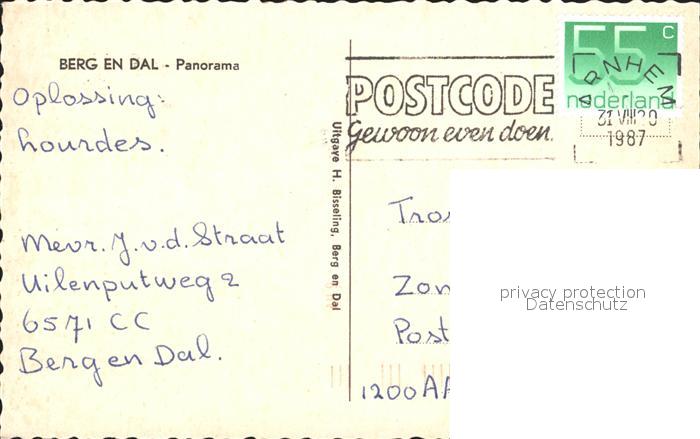 BERG EN DAL - Panorama
Oplossing:
Lourdes.
Mevr. J.v.d. Straat
Uilenputweg 2
6571 CC
Berg en Dal.
Uitgave H. Bisseling, Berg en Dal
POSTCODE
Gewoon even doen.
55 c
nederland
ARNHEM
31 VIII 20
1987
Tros
Zon
Post
1200 AA
privacy protection
Datenschutz